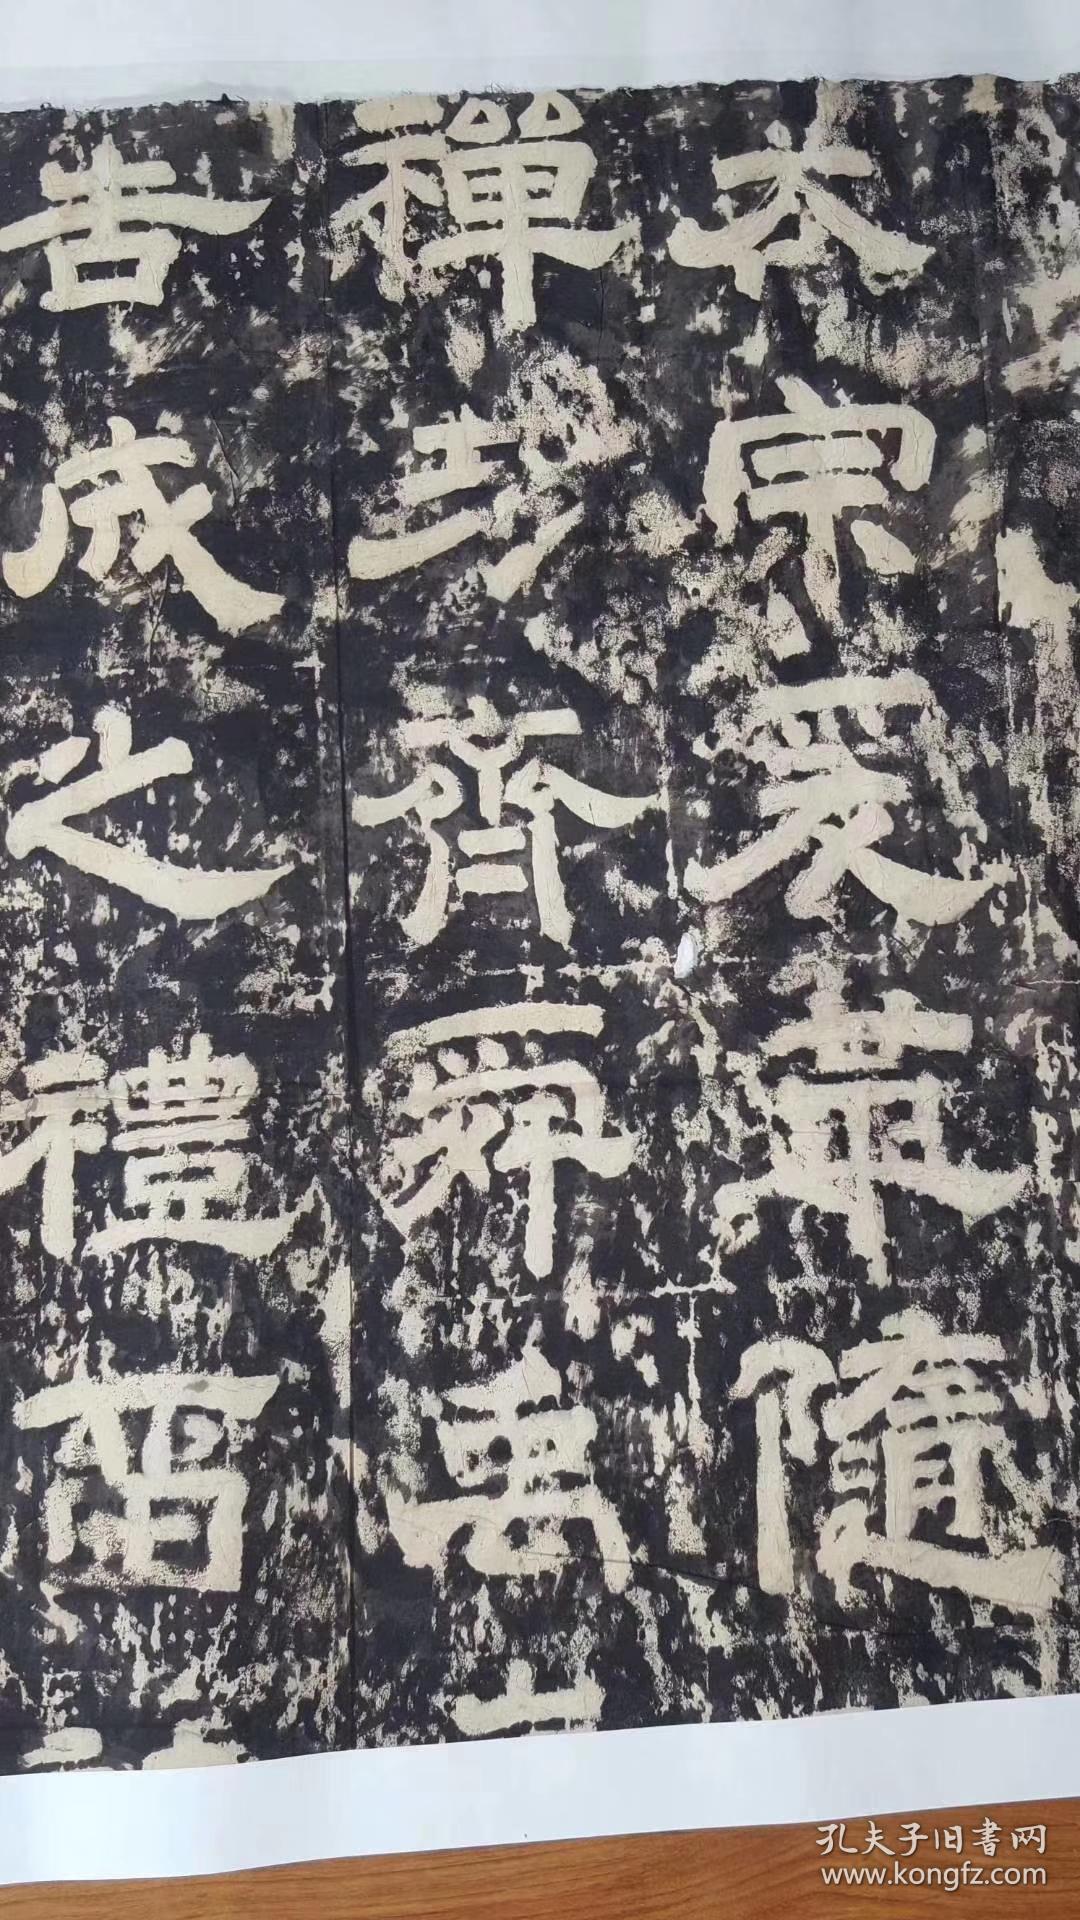 太宗爰革隨
禪功齊舜禹
告成之禮留
孔夫子旧書网
www.kongfz.com